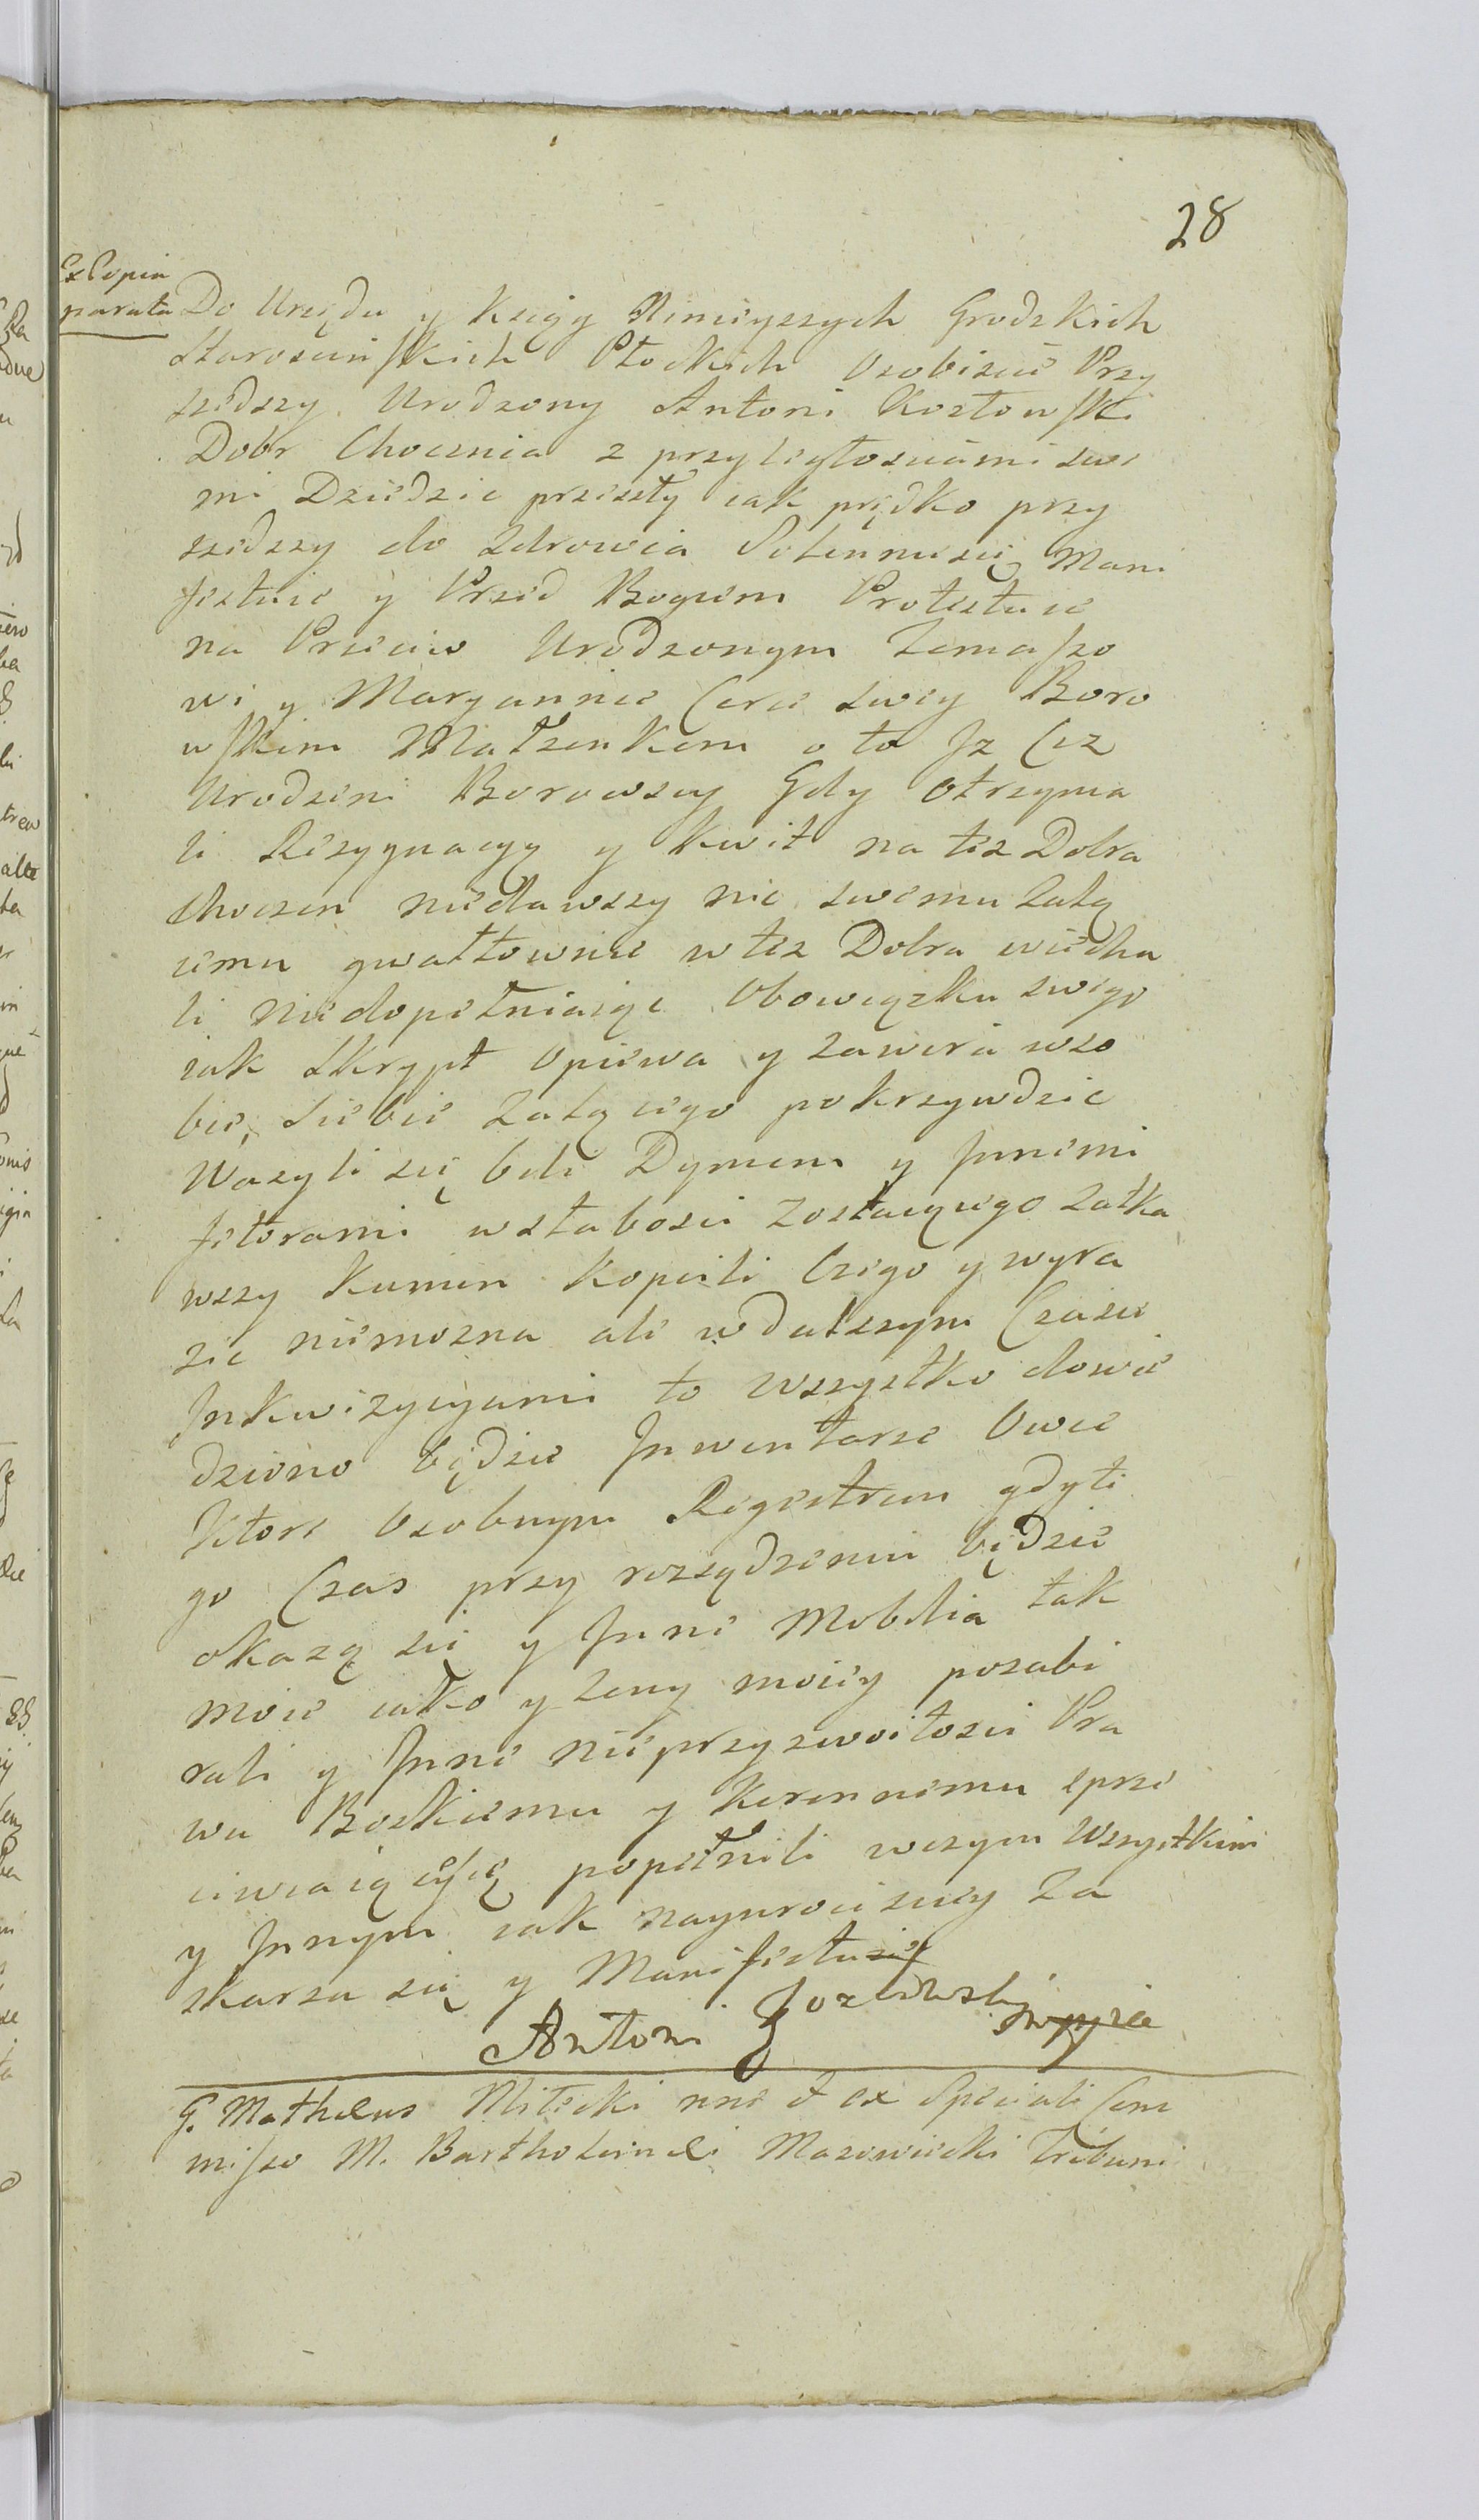 28
Ex Copia
parata
Do Urzędu y Xsiąg Ninieyszych Grodzkich
Staroscińskich Płockich Osobiscie Przy
szedszy Urodzony Antoni Kozłowski
Dobr Chocznia z przyległosciami swe
mi Dziedzic przeszły iak prędko przy
szedszy do Zdrowia Solennie się Mani
festuie y Przed Bogiem Protestuie
na Przeciw Urodzonym Tomaszo
wi y Maryannie Corce swey Boro
wskim Małzenkom o to Jz Ciz
Urodzeni Borowscy Gdy otrzyma
li Rezygnacyą y Kwit na tez Dobra
Choczen niedawszy nic swemu Załą
cemu gwałtownie w tez Dobra wiecha
li niedopełniaiąc Obowiązku swego
iak Skrypt Opiewa y zawiera wso
bie, Siebie Załącego pokrzywdzic
Wazyli się bo Dymem y Jnnemi
fetorami wsłabosci Zostaiącego Zatka
wszy Kumin Kopcili Czego y wyra
zic niemozna ale w dalszym Czasie
Jnkwizycyami to wszystko dowie
dziono będzie Jnwentarze Owce
Ktore Osobnym Regestrem gdy te
go Czas przy rozsądzeniu będzie
okazą się y Jnne Mobilia tak
moie iako y Zony moiey pozabi
rali y Jnne nieprzyzwoitosci Pra
wu Boskiemu y Koronnemu sprze
ciwiaiące się popełnili wczym wszystkim
y Jnnym iak nayuroczysciey Za
skarza się y Manifestuie
Antoni Kozłowski mppria
G. Matheus Milecki suo et ex Speciali Com
misso M. Bartholomei Mazowiecki Tribuni